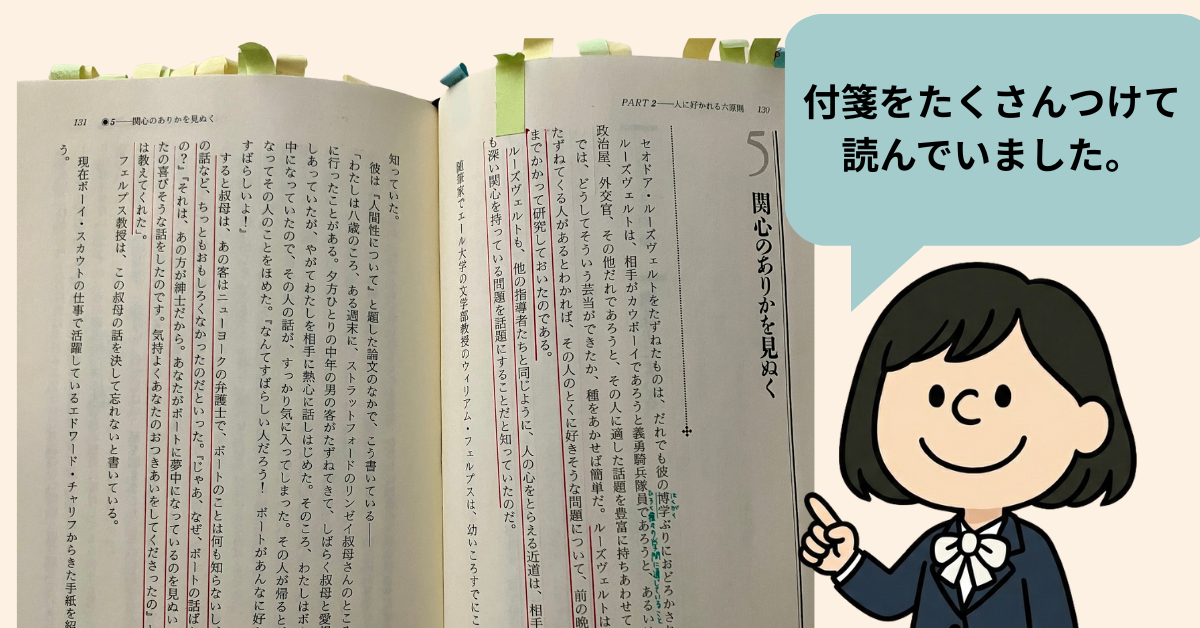 付箋をたくさんつけて
読んでいました。
PART 2──人に好かれる六原則 130
5
関心のありかを見ぬく
セオドア・ルーズヴェルトをたずねたものは、だれでも彼の博学ぶりにおどろかされ
はくがく
ルーズヴェルトは、相手がカウボーイであろうと義勇騎兵隊員であろうと、あるい
政治屋、外交官、その他だれであろうと、その人に適した話題を豊富に持ちあわせて
では、どうしてそういう芸当ができたか、種をあかせば簡単だ。ルーズヴェルトは
たずねてくる人があるとわかれば、その人のとくに好きそうな問題について、前の晩
までかかって研究しておいたのである。
ルーズヴェルトも、他の指導者たちと同じように、人の心をとらえる近道は、相手
も深い関心を持っている問題を話題にすることだと知っていたのだ。
随筆家でエール大学の文学部教授のウィリアム・フェルプスは、幼いころすでにこ
131 ◉5──関心のありかを見ぬく
知っていた。
彼は『人間性について』と題した論文のなかで、こう書いている──
「わたしは八歳のころ、ある週末に、ストラットフォードのリンゼイ叔母さんのところ
に行ったことがある。夕方ひとりの中年の男の客がたずねてきて、しばらく叔母と愛想
しあっていたが、やがてわたしを相手に熱心に話しはじめた。そのころ、わたしはボ
中になっていたので、その人の話が、すっかり気に入ってしまった。その人が帰ると
なってその人のことをほめた。『なんてすばらしい人だろう！ ボートがあんなに好
すばらしいよ！』
すると叔母は、あの客はニューヨークの弁護士で、ボートのことは何も知らないし
の話など、ちっともおもしろくなかったのだといった。『じゃあ、なぜ、ボートの話ば
の？』『それは、あの方が紳士だから。あなたがボートに夢中になっているのを見ぬい
たの喜びそうな話をしたのです。気持よくあなたのおつきあいをしてくださったの』
は教えてくれた」。
フェルプス教授は、この叔母の話を決して忘れないと書いている。
現在ボーイ・スカウトの仕事で活躍しているエドワード・チャリフからきた手紙を紹
う。